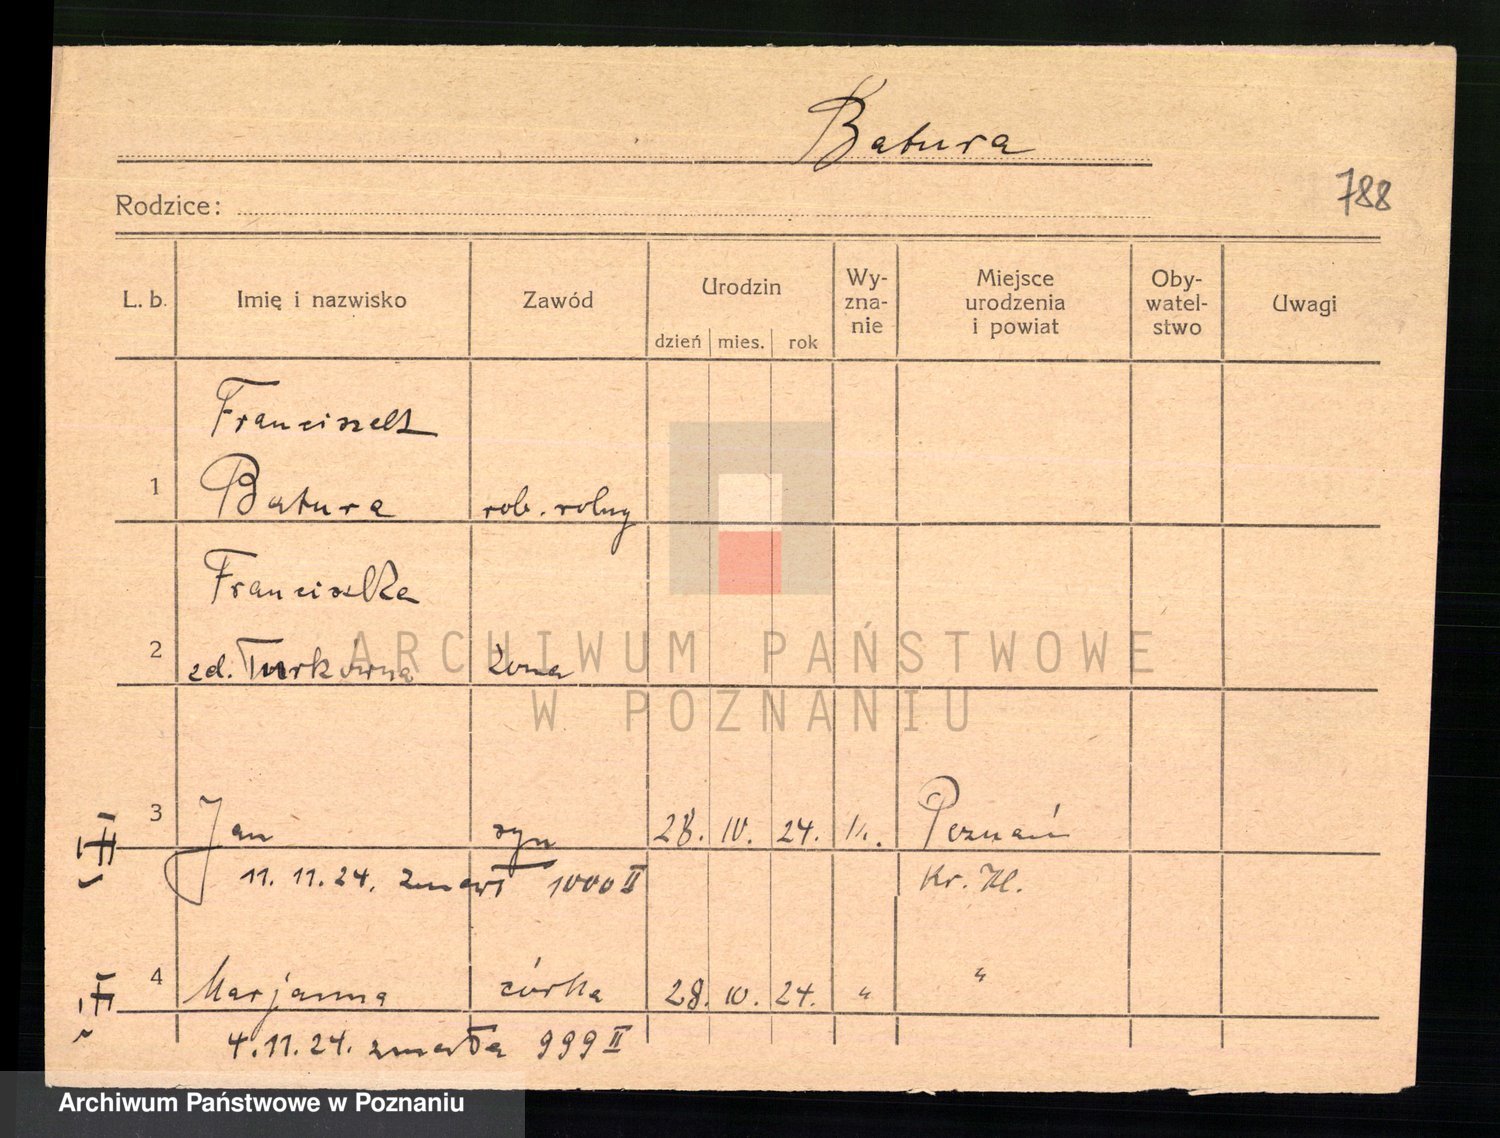 Batura
788
Rodzice:
L. b.
Imię i nazwisko
Zawód
Urodzin
dzień
mies.
rok
Wy-
zna-
nie
Miejsce
urodzenia
i powiat
Oby-
watel-
stwo
Uwagi
Franciszek
1 Batura rob. rolny
Franciszka
2 zd. Turkówna żona
3 Jan syn 28. IV. 24. Poznań
11. 11. 24. zmarł 1000 II Kr. Hl.
4 Marjanna córka 28. IV. 24. " "
4. 11. 24. zmarła 999 II
ARCHIWUM PAŃSTWOWE
W POZNANIU
Archiwum Państwowe w Poznaniu